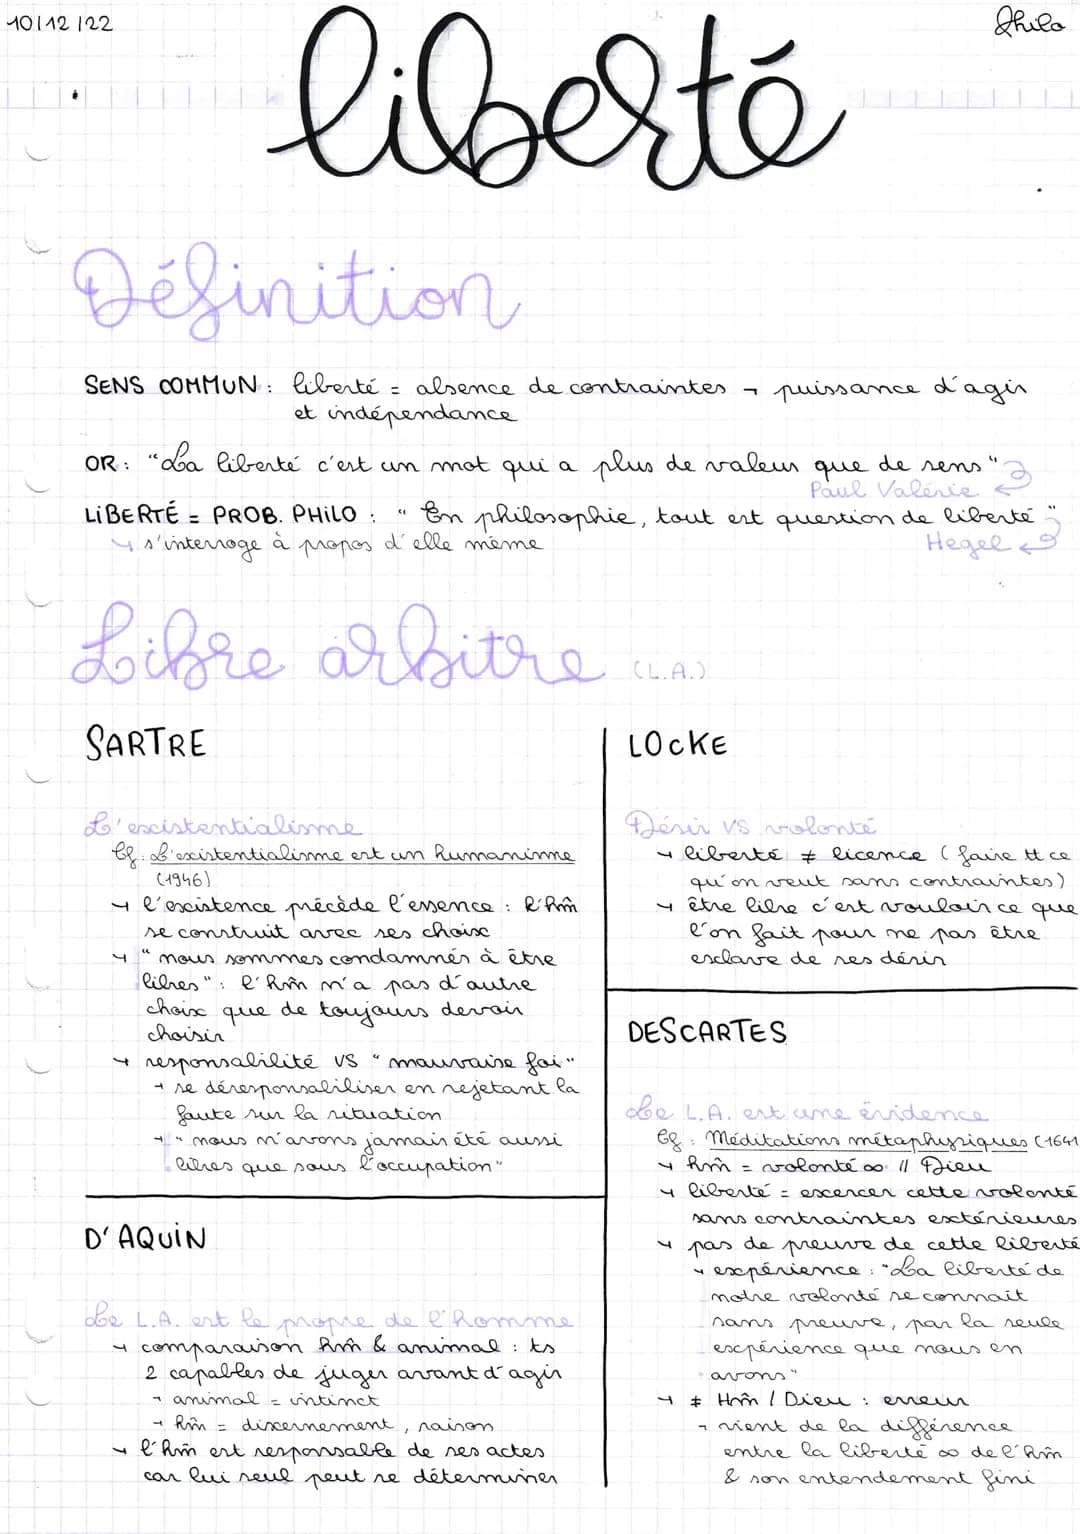 10/12/22
Philo
liberté
Définition
SENS COMMUN : liberté = absence de contraintes → puissance d'agir
et indépendance
OR : "La liberté c'est un mot qui a plus de valeur que de sens"
Paul Valérie
LIBERTÉ = PROB. PHILO : " En philosophie, tout est question de liberté "
↳ s'interroge à propos d'elle même
Hegel
Libre arbitre (L.A.)
SARTRE
L'existentialisme
Cf : L'existentialisme est un humanisme
(1946)
→ l'existence précède l'essence : l'hm̂
se construit avec ses choix
→ " nous sommes condamnés à être
libres " : l'hm̂ n'a pas d'autre
choix que de toujours devoir
choisir
→ responsabilité VS " mauvaise foi "
→ se déresponsabiliser en rejetant la
faute sur la situation
→ " nous n'avons jamais été aussi
libres que sous l'occupation "
D'AQUIN
Le L.A. est le propre de l'homme
→ comparaison hm̂ & animal : ts
2 capables de juger avant d'agir
→ animal = intinct
→ hm̂ = discernement, raison
→ l'hm̂ est responsable de ses actes
car lui seul peut se déterminer
LOCKE
Désir VS volonté
→ liberté ≠ licence ( faire tt ce
qu'on veut sans contraintes)
→ être libre c'est vouloir ce que
l'on fait pour ne pas être
esclave de ses désir
DESCARTES
Le L.A. est une évidence
Cf : Méditations métaphysiques (1641
→ hm̂ = volonté ∞ // Dieu
→ liberté = excercer cette volonté
sans contraintes extérieures
→ pas de preuve de cette liberté
→ expérience : "La liberté de
notre volonté se connaît
sans preuve, par la seule
expérience que nous en
avons"
→ ≠ Hm̂ / Dieu : erreur
→ vient de la différence
entre la liberté ∞ de l'hm̂
& son entendement fini